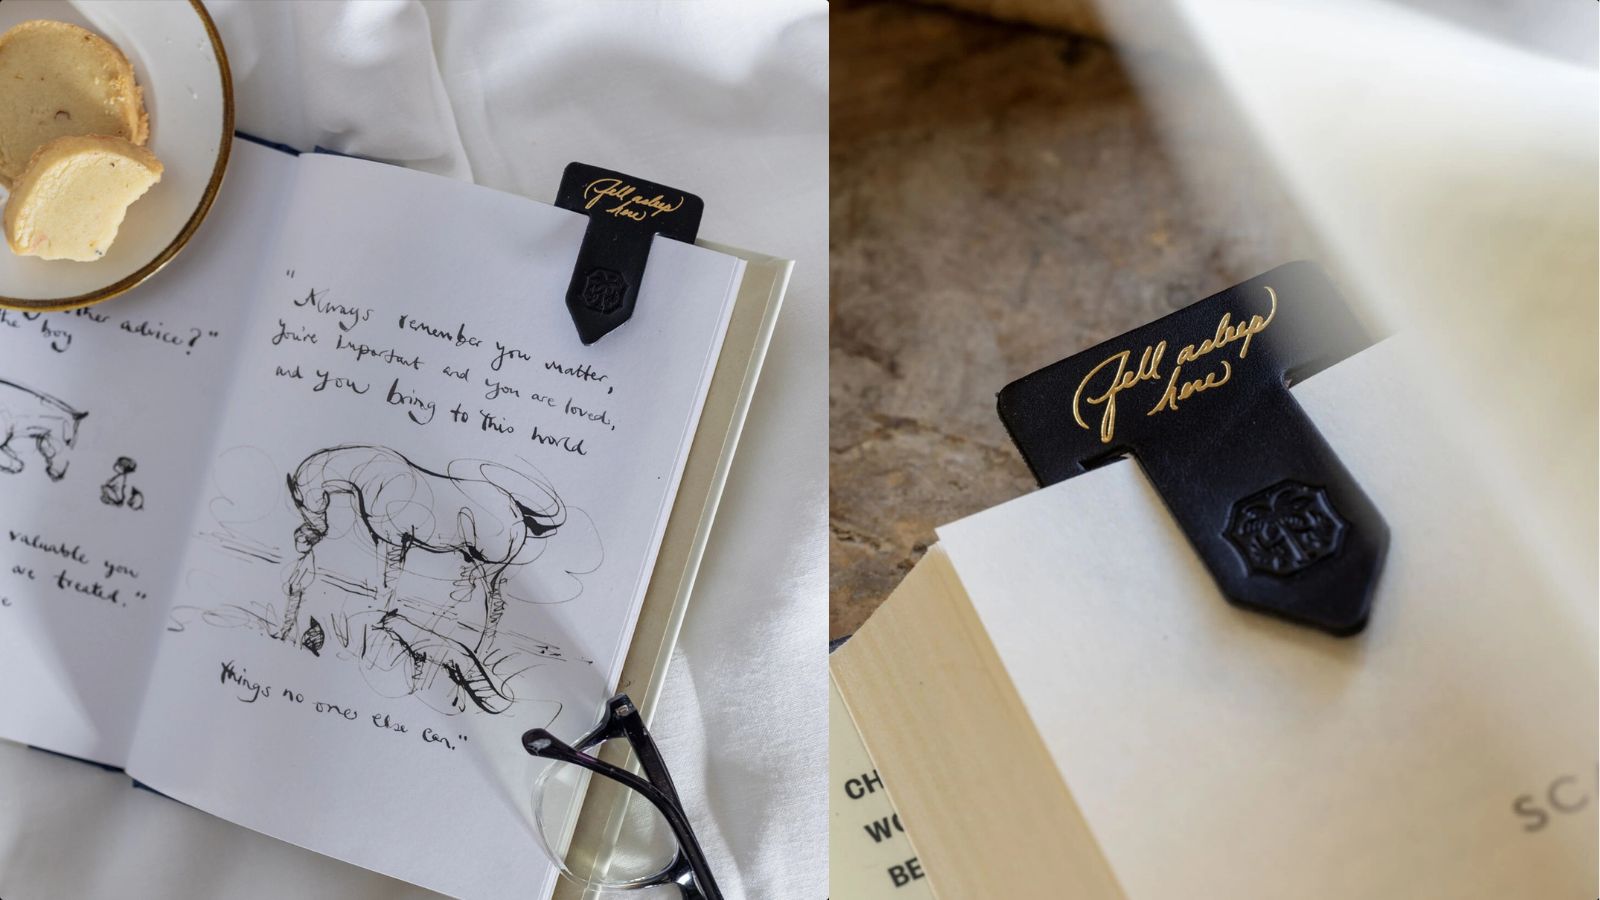 Fell asleep
here
other advice?"
the boy
valuable you
are treated."
"Always remember you matter,
you're important and you are loved,
and you bring to this world
things no one else can."
Fell asleep
here
CH
WO
BE
SC